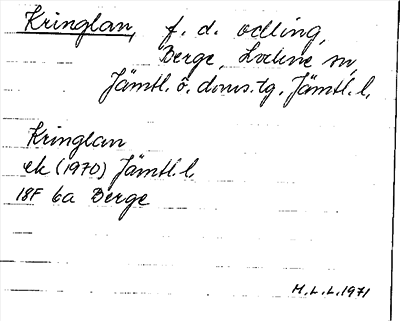 Kringlan, f. d. odling,
Berge, Lockne sn,
Jämtl. ö. doms.tg. Jämtl. l.
Kringlan
ek (1970) Jämtl. l.
18F 6a Berge
M.L.L. 1971